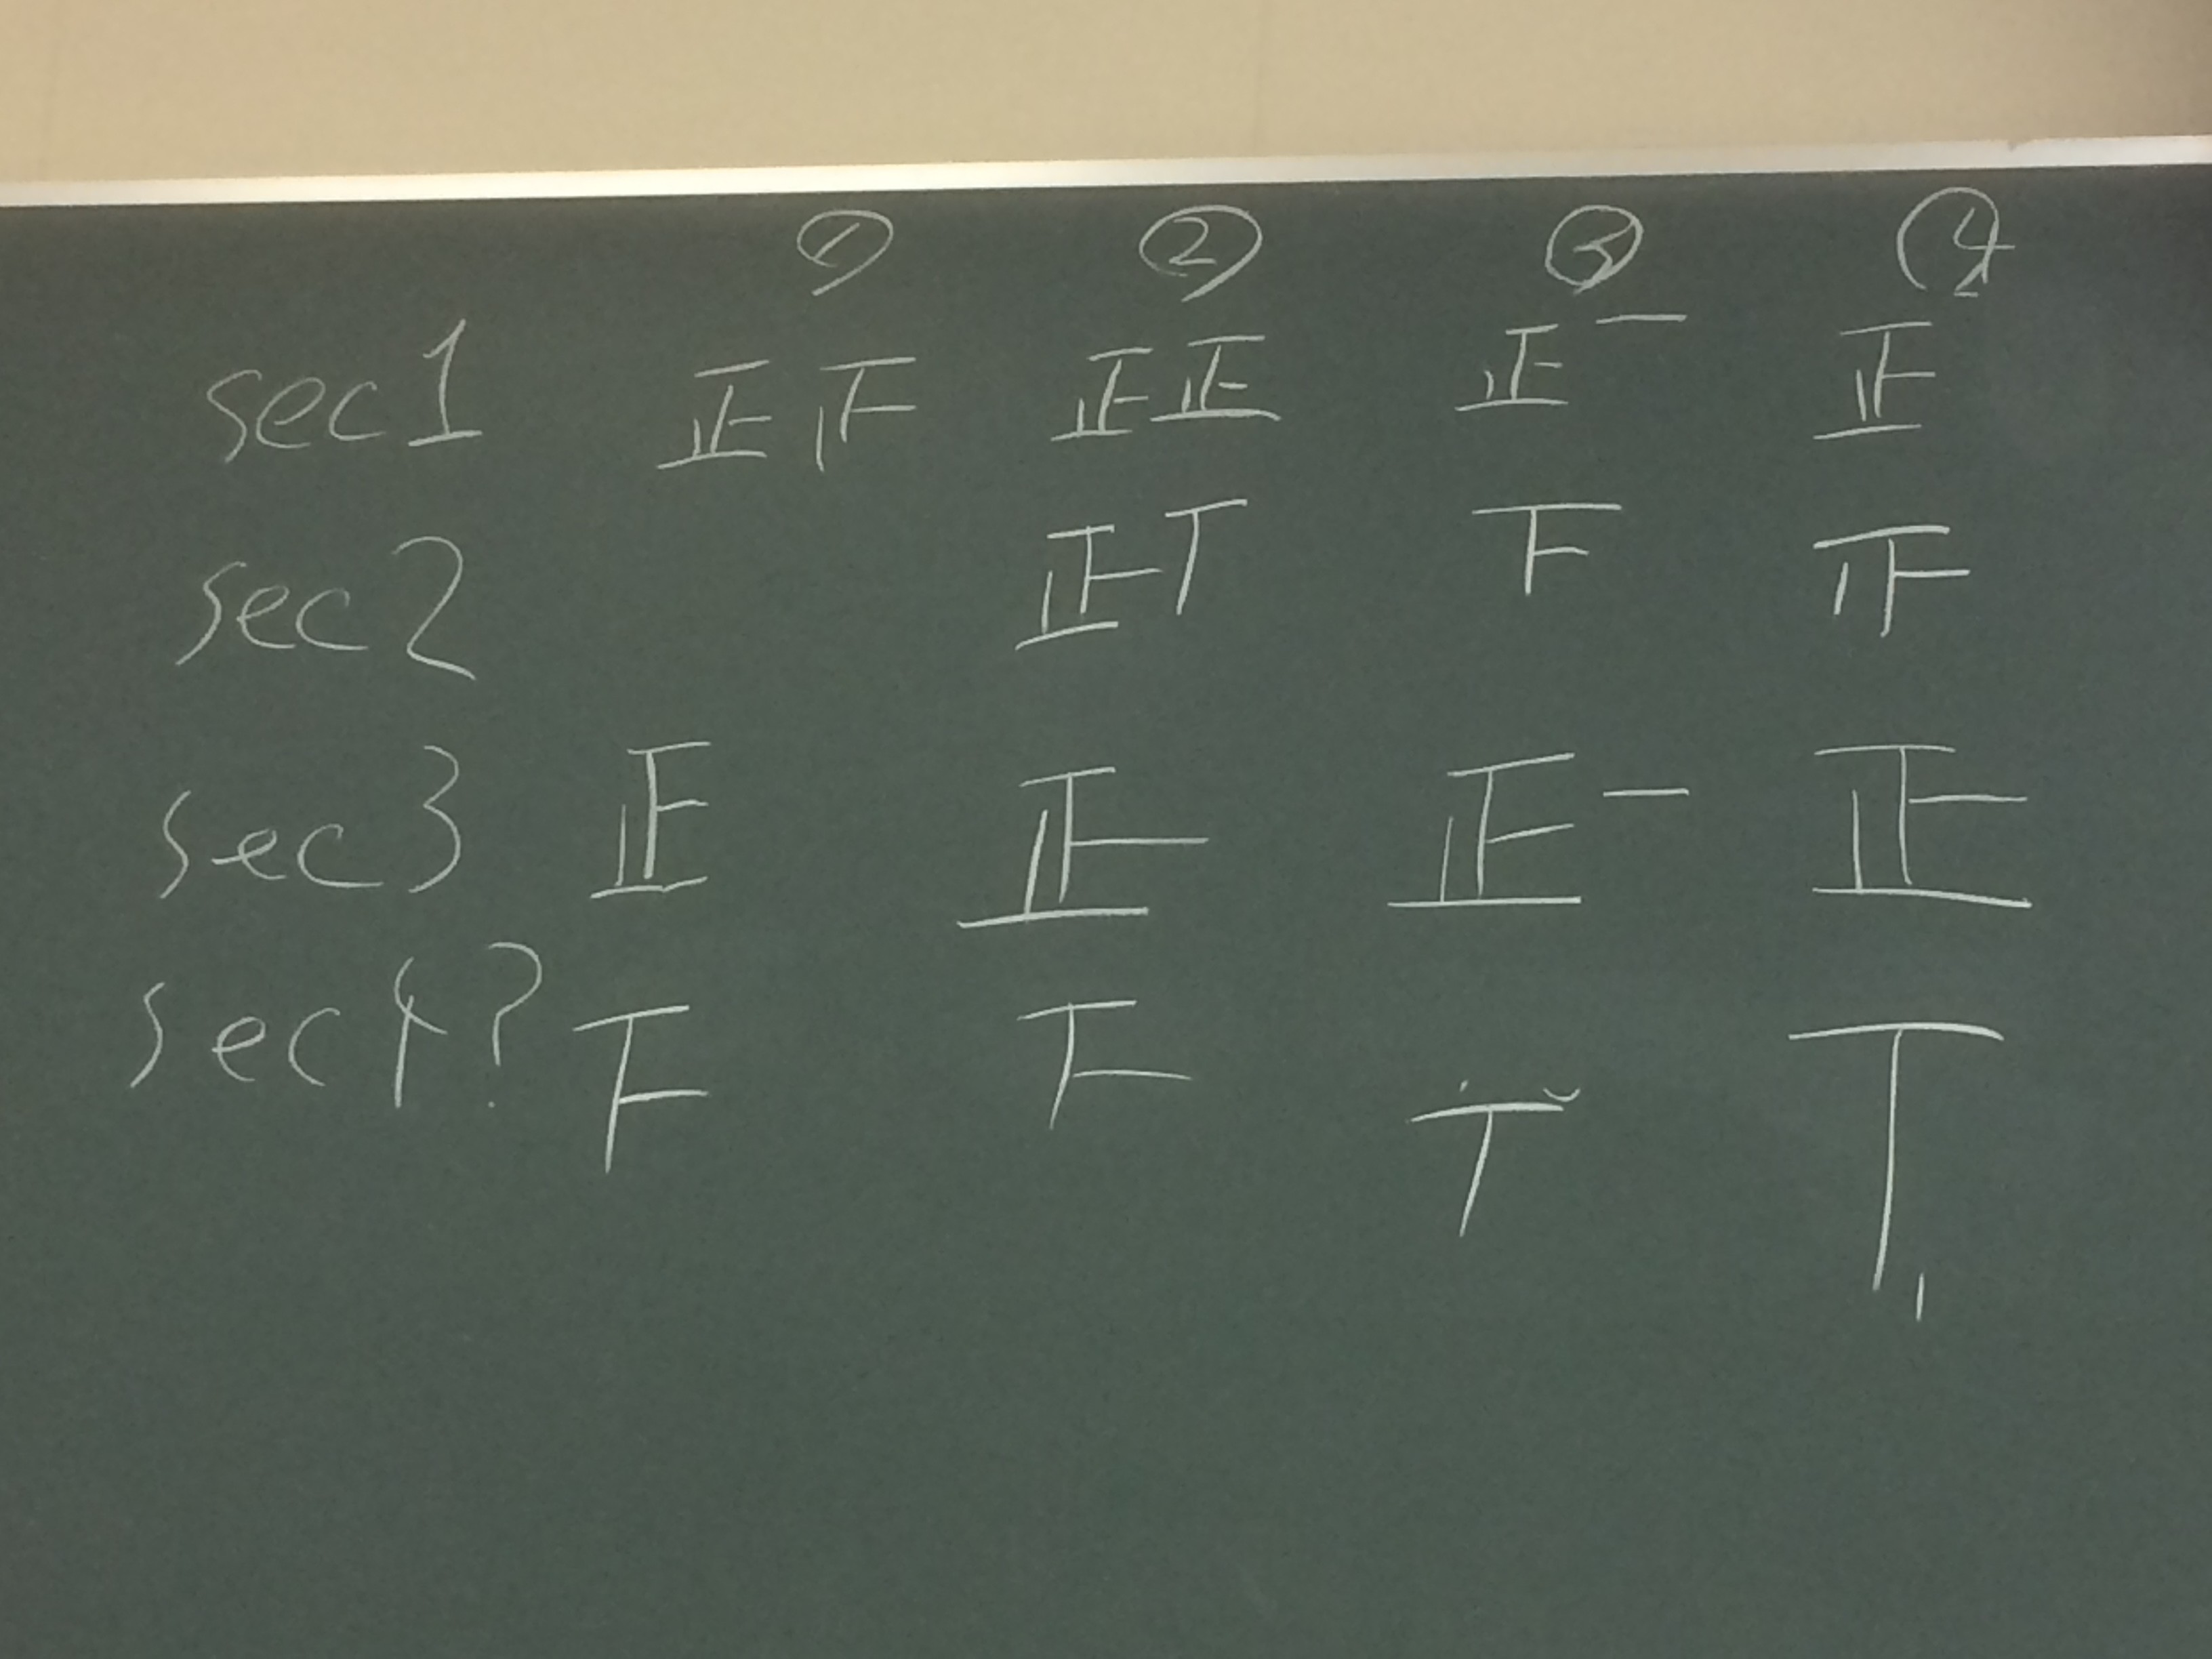 ① ② ③ ④
sec1 正正 正正 正一 正
sec2 正T 下 正
sec3 正 正 正一 正
sec4? 下 下 T T